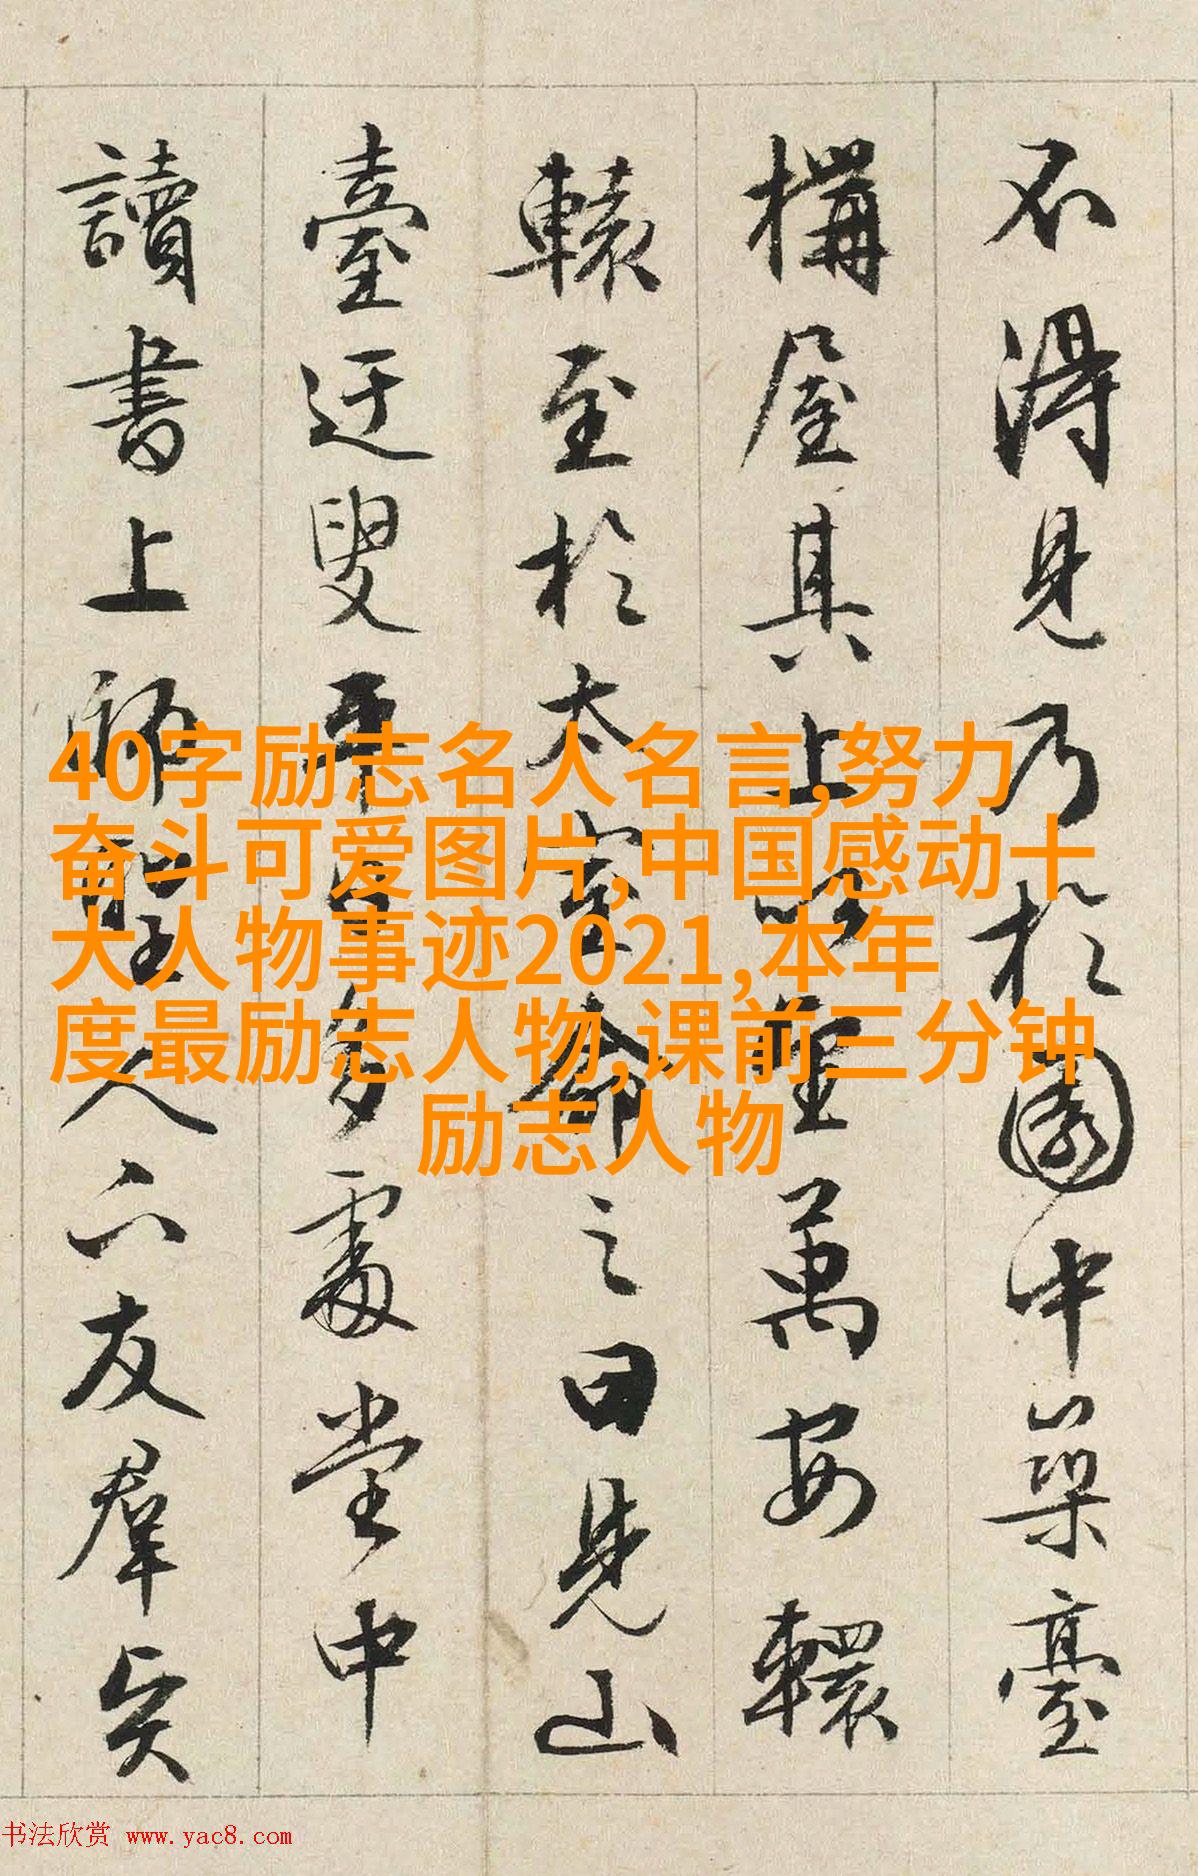 不得見乃於園中築臺
構屋其上以望萬安轘
轅至於太室命之曰見山
臺迂叟平日多處堂中
讀書上師聖人下友羣賢
40字励志名人名言,努力
奋斗可爱图片,中国感动十
大人物事迹2021,本年
度最励志人物,课前三分钟
励志人物
书法欣赏 www.yac8.com